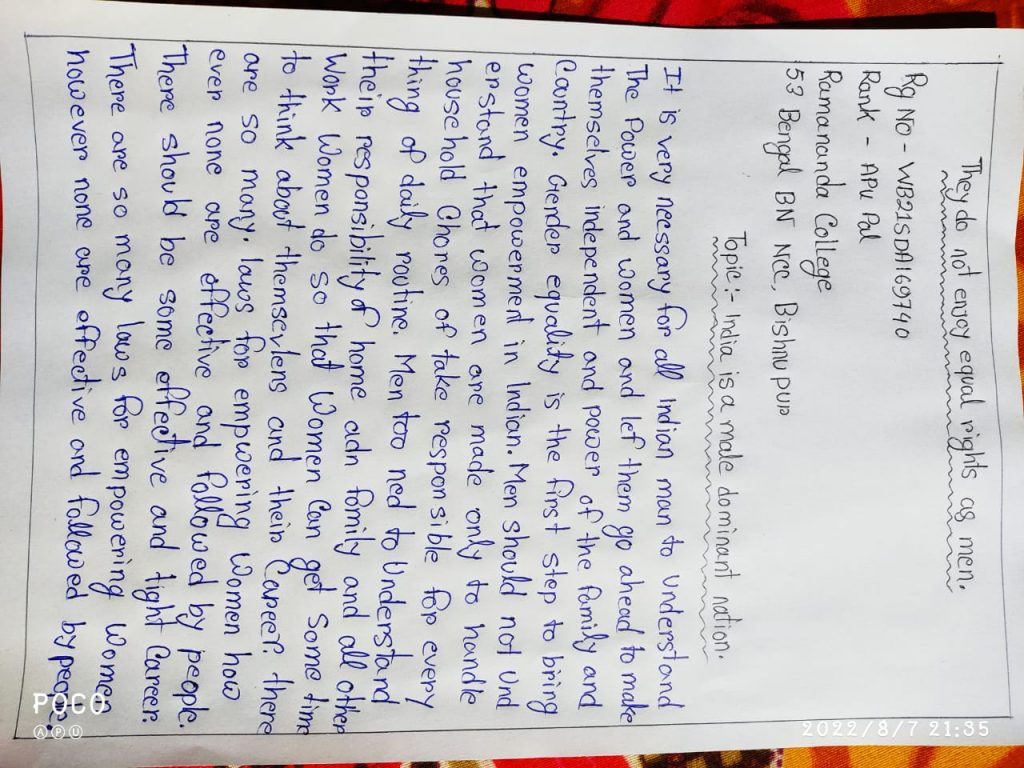 They do not envoy equal rights as men.
Rg No - WB21SDA169740
Rank - APU Pal
Ramananda College
53 Bengal BN NCC, Bishnupur
Topic:- India is a male dominant nation.
It is very necessary for all Indian man to understand
The Power and women and let them go ahead to make
themselves independent and power of the family and
Country. Gender equality is the first step to bring
women empowerment in Indian. Men should not und
erstand that women are made only to handle
household Chores of take responsible for every
thing of daily routine. Men too ned to Understand
their responsibility of home adn family and all other
Work Women do so that Women Can get Some time
to think about themservlens and their Career. there
are so many. laws for empowering Women how
ever none are effective and followed by people.
There should be some effective and tight Career.
There are so many laws for empowering Women
however none are effective and followed by people.
POCO
APU
2022/8/7 21:35